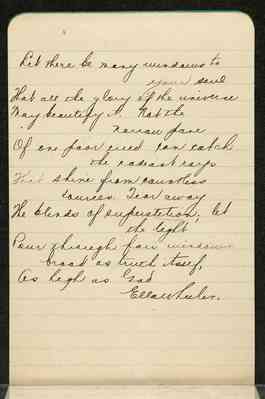 Let there be many windows to
your soul
That all the glory of the universe
May beautify it. Not the
narrow pane
Of one poor creed can catch
the radiant rays
That shine from countless
sources. Tear away
The blinds of superstition; let
the light
Pour through fair windows
broad as truth itself,
As high as God
Ella Wheeler.